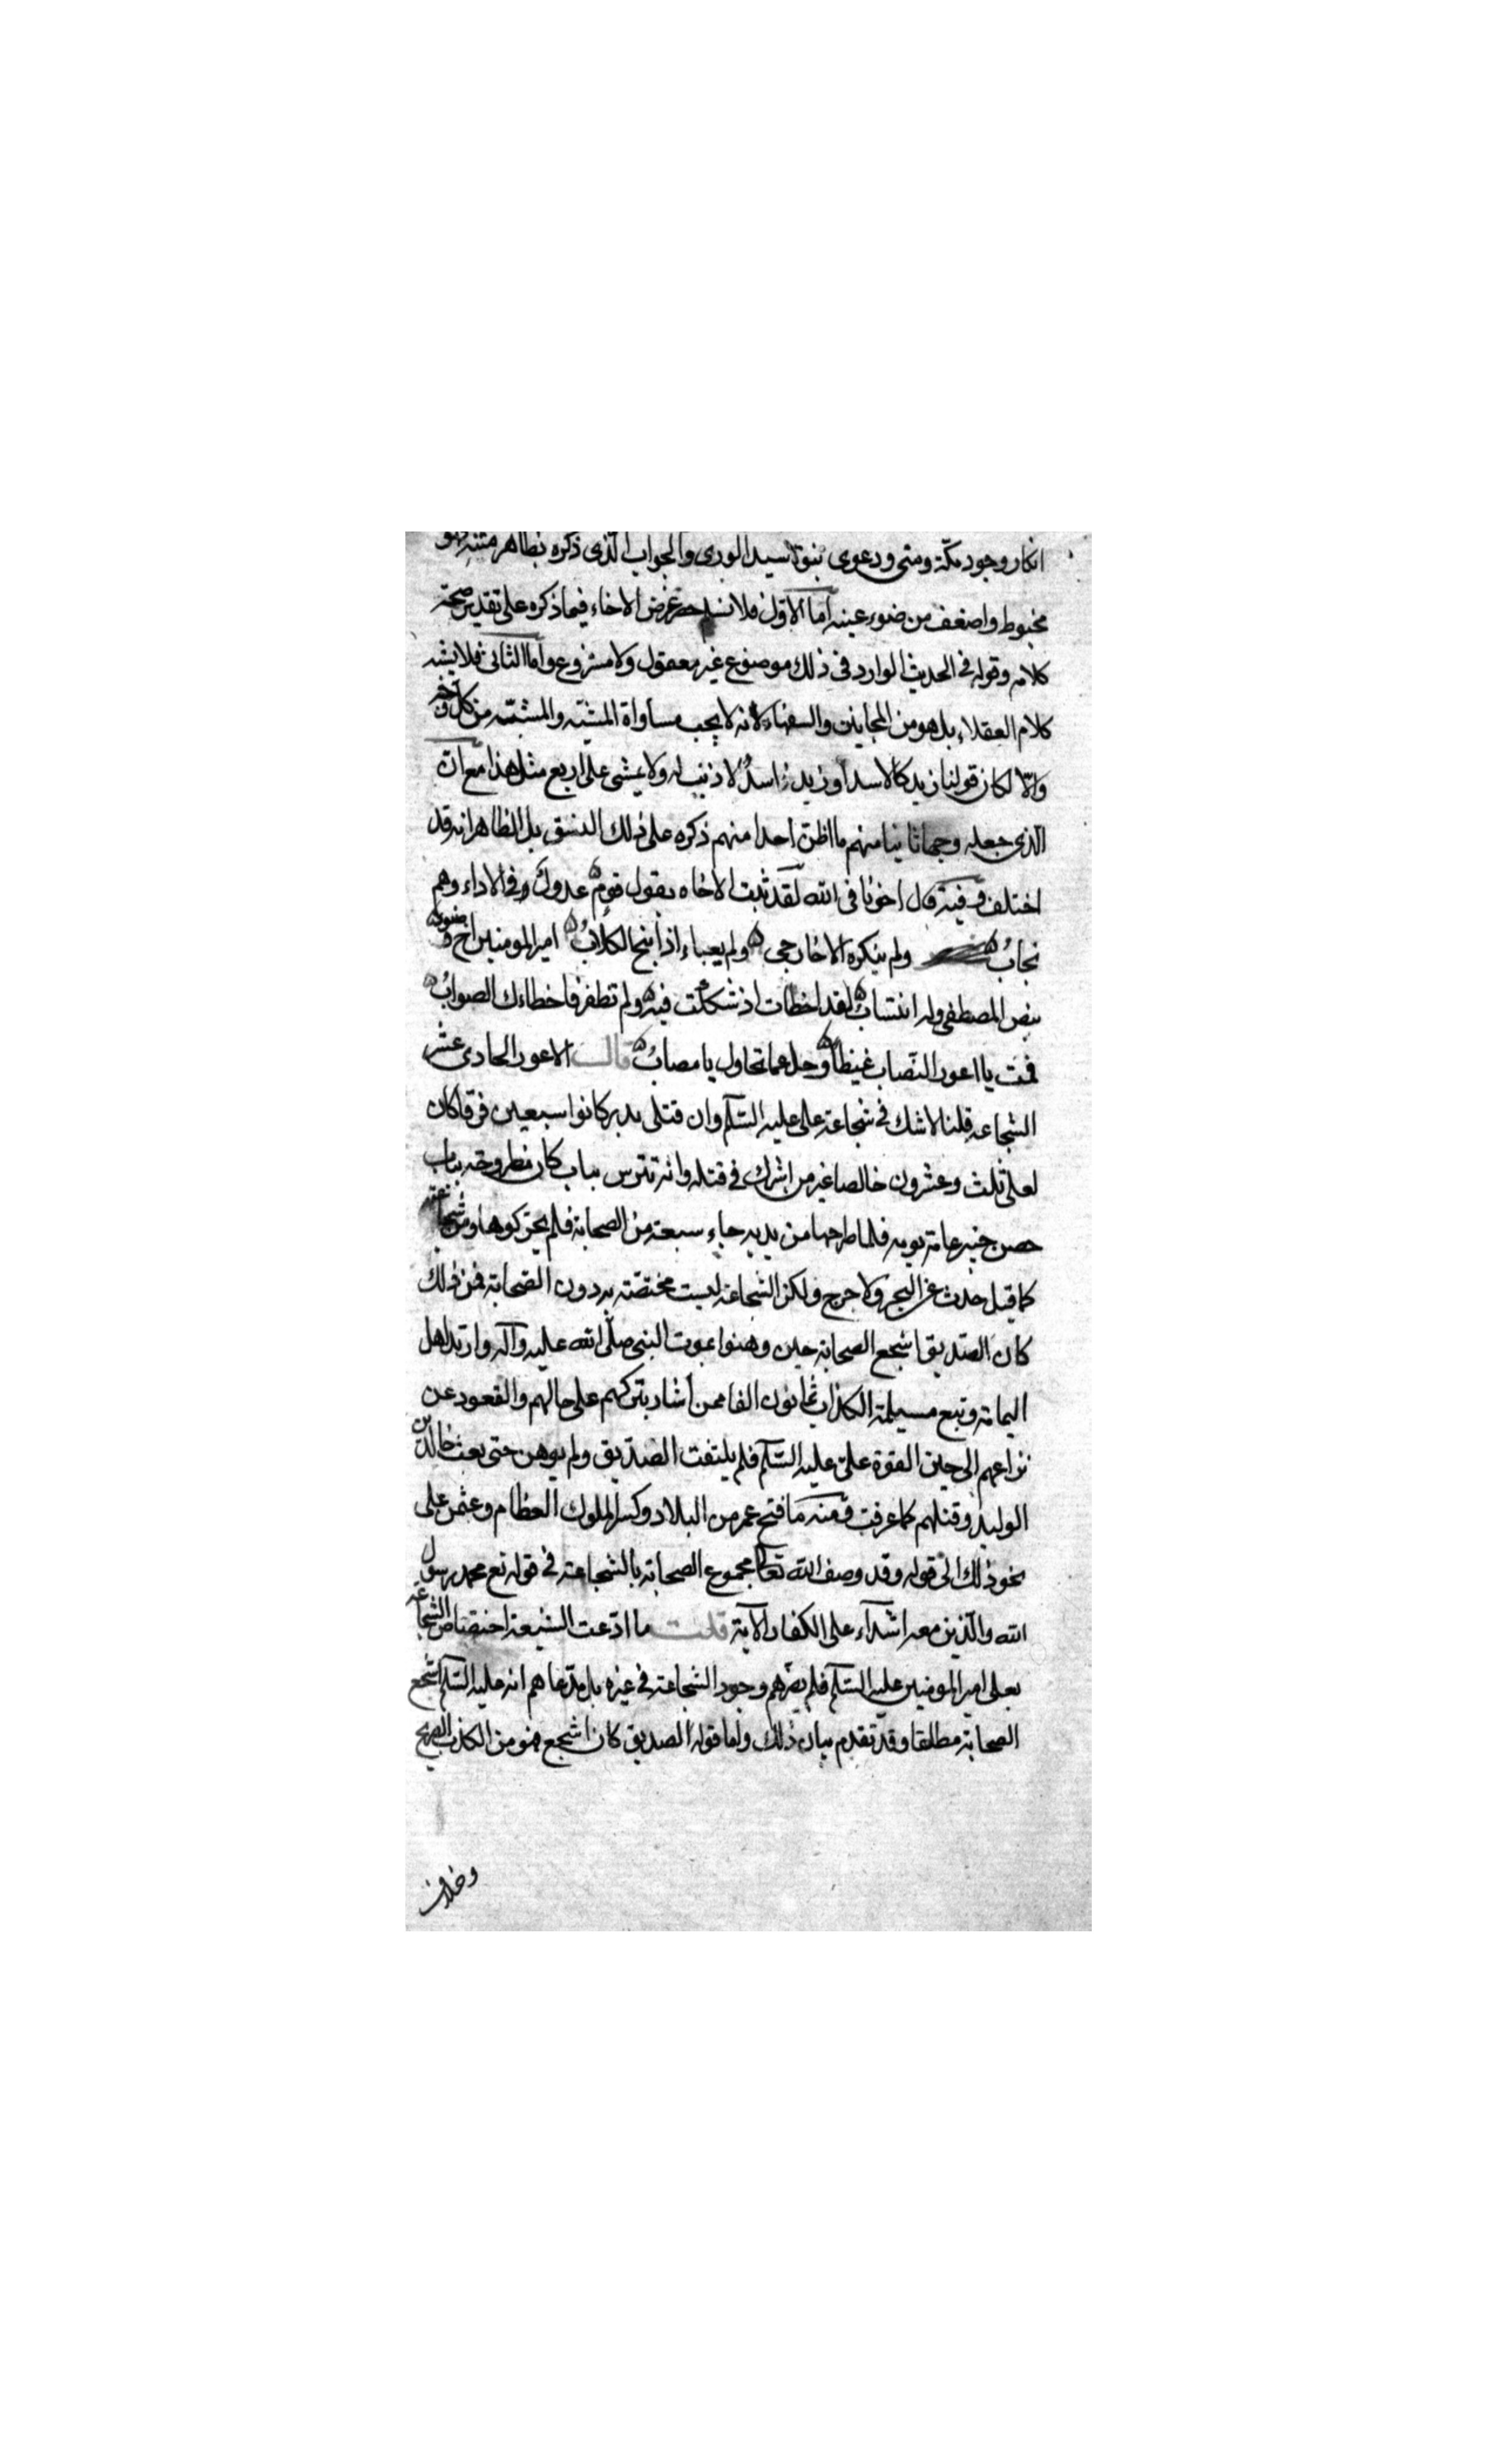 انكار وجود مكّة ومنى ودعوى نبوّة سيد الورى والجواب الذى ذكره بظاهر متنه فهو
مخبوط واضعف من ضوء عينه اما الاوّل فلا نسلم حصر غرض الاخاء فيما ذكره على تقدير صحة
كلامه وقوله فى الحديث الوارد فى ذلك موضوع غير معقول ولا مشروع واما الثانى فلا يشبه
كلام العقلاء بل هو من المجانين والسفهاء لانه لا يجب مساواة المشبّه والمشبّه من كل
والّا لكان قولنا زيد كالاسد او زيد اسدٌ لا ذنب له ولا يمشى على اربع مثل هذا مع ان
الّذى جعله وجها ثانيا منهم ما اظن احدا منهم ذكره على ذلك النسق بل الظاهر انه قد
اختلف وفيه قال اخونا فى الله لقد ثبت الاخاء بقول قوم عدوك وفى الاداء وهم
نجابُ ولم ينكره الا خارجى ولم يعباء اذا نبح الكلابُ امير المومنين اخ
بنص المصطفى وله انتسابُ لقد اخطات اذ شككت فيه ولم تظفر فاخطاءك الصوابُ
فمت يا اعور النصاب غيظا وحل عما تحاول يا مصابُ قالـــ الاعور الحادى عشر
الشجاعه قلنا لا شك فى شجاعة على عليه السّلم وان قتلى بدر كانوا سبعين فرقا كان
لعلى ثلث وعشرون خالصا غير من اشرك فى قتله وانه تترس بباب كان مطروحه بباب
حصن خيبر عامة يومه فلما طرحها من يديه جاء سبعة من الصحابة فلم يحرّكوها ومن شجاعته
كما قيل حدث عن البحر ولا حرج ولكن الشجاعه ليست مختصّة به دون الصّحابة فمن ذلك
كان الصّديق اشجع الصحابه حين وهنوا بموت النبى صلّى الله عليه وآله وارتد اهل
اليمامة وتبع مسيلمة الكذاب ثمانون الفا ممن اشار بتركهم على حالهم والقعود عن
نزاعهم الى حين القوة علىّ عليه السّلم فلم يلتفت الصّديق ولم يوهن حتى بعث خالد بن
الوليد وقتلهم كما عرفت ومنه ما فتح عمر من البلاد وكسر الملوك العظام وعثمن على
نحو ذلك الى قوله وقد وصف الله تعالى مجموع الصحابه بالشجاعة فى قوله تع محمد رسول
الله والّذين معه اشدّاء على الكفار الاية قلــت ما ادّعت الشيعة اختصاص الشجاعة
بعلى امير المومنين عليه السّلم فلم يضرّهم وجود الشجاعة فى غيره بل مدّعاهم انه عليه السّلم اشجع
الصحابة مطلقا وقد تقدم بيان ذلك واما قوله الصديق كان اشجع فهو من الكذب الصريح
وخلاف